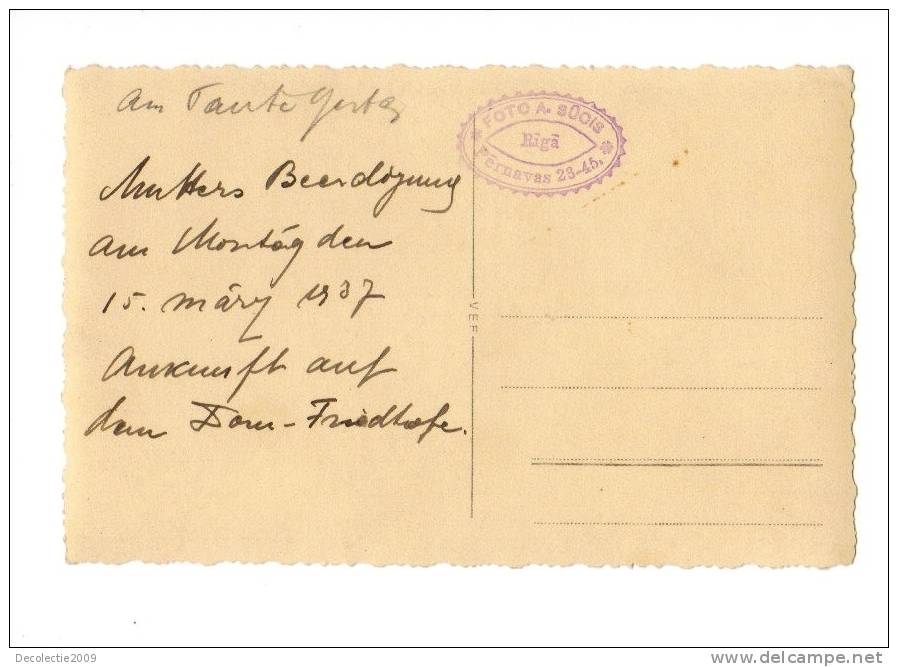 an Tante Gerta
Mutters Beerdigung
am Montag den
15. März 1937
Ankunft auf
dem Dom-Friedhofe.
FOTO A. SŪCIS
Rīgā
Pērnavas 23-45,
VEF
Decolectie2009
www.delcampe.net